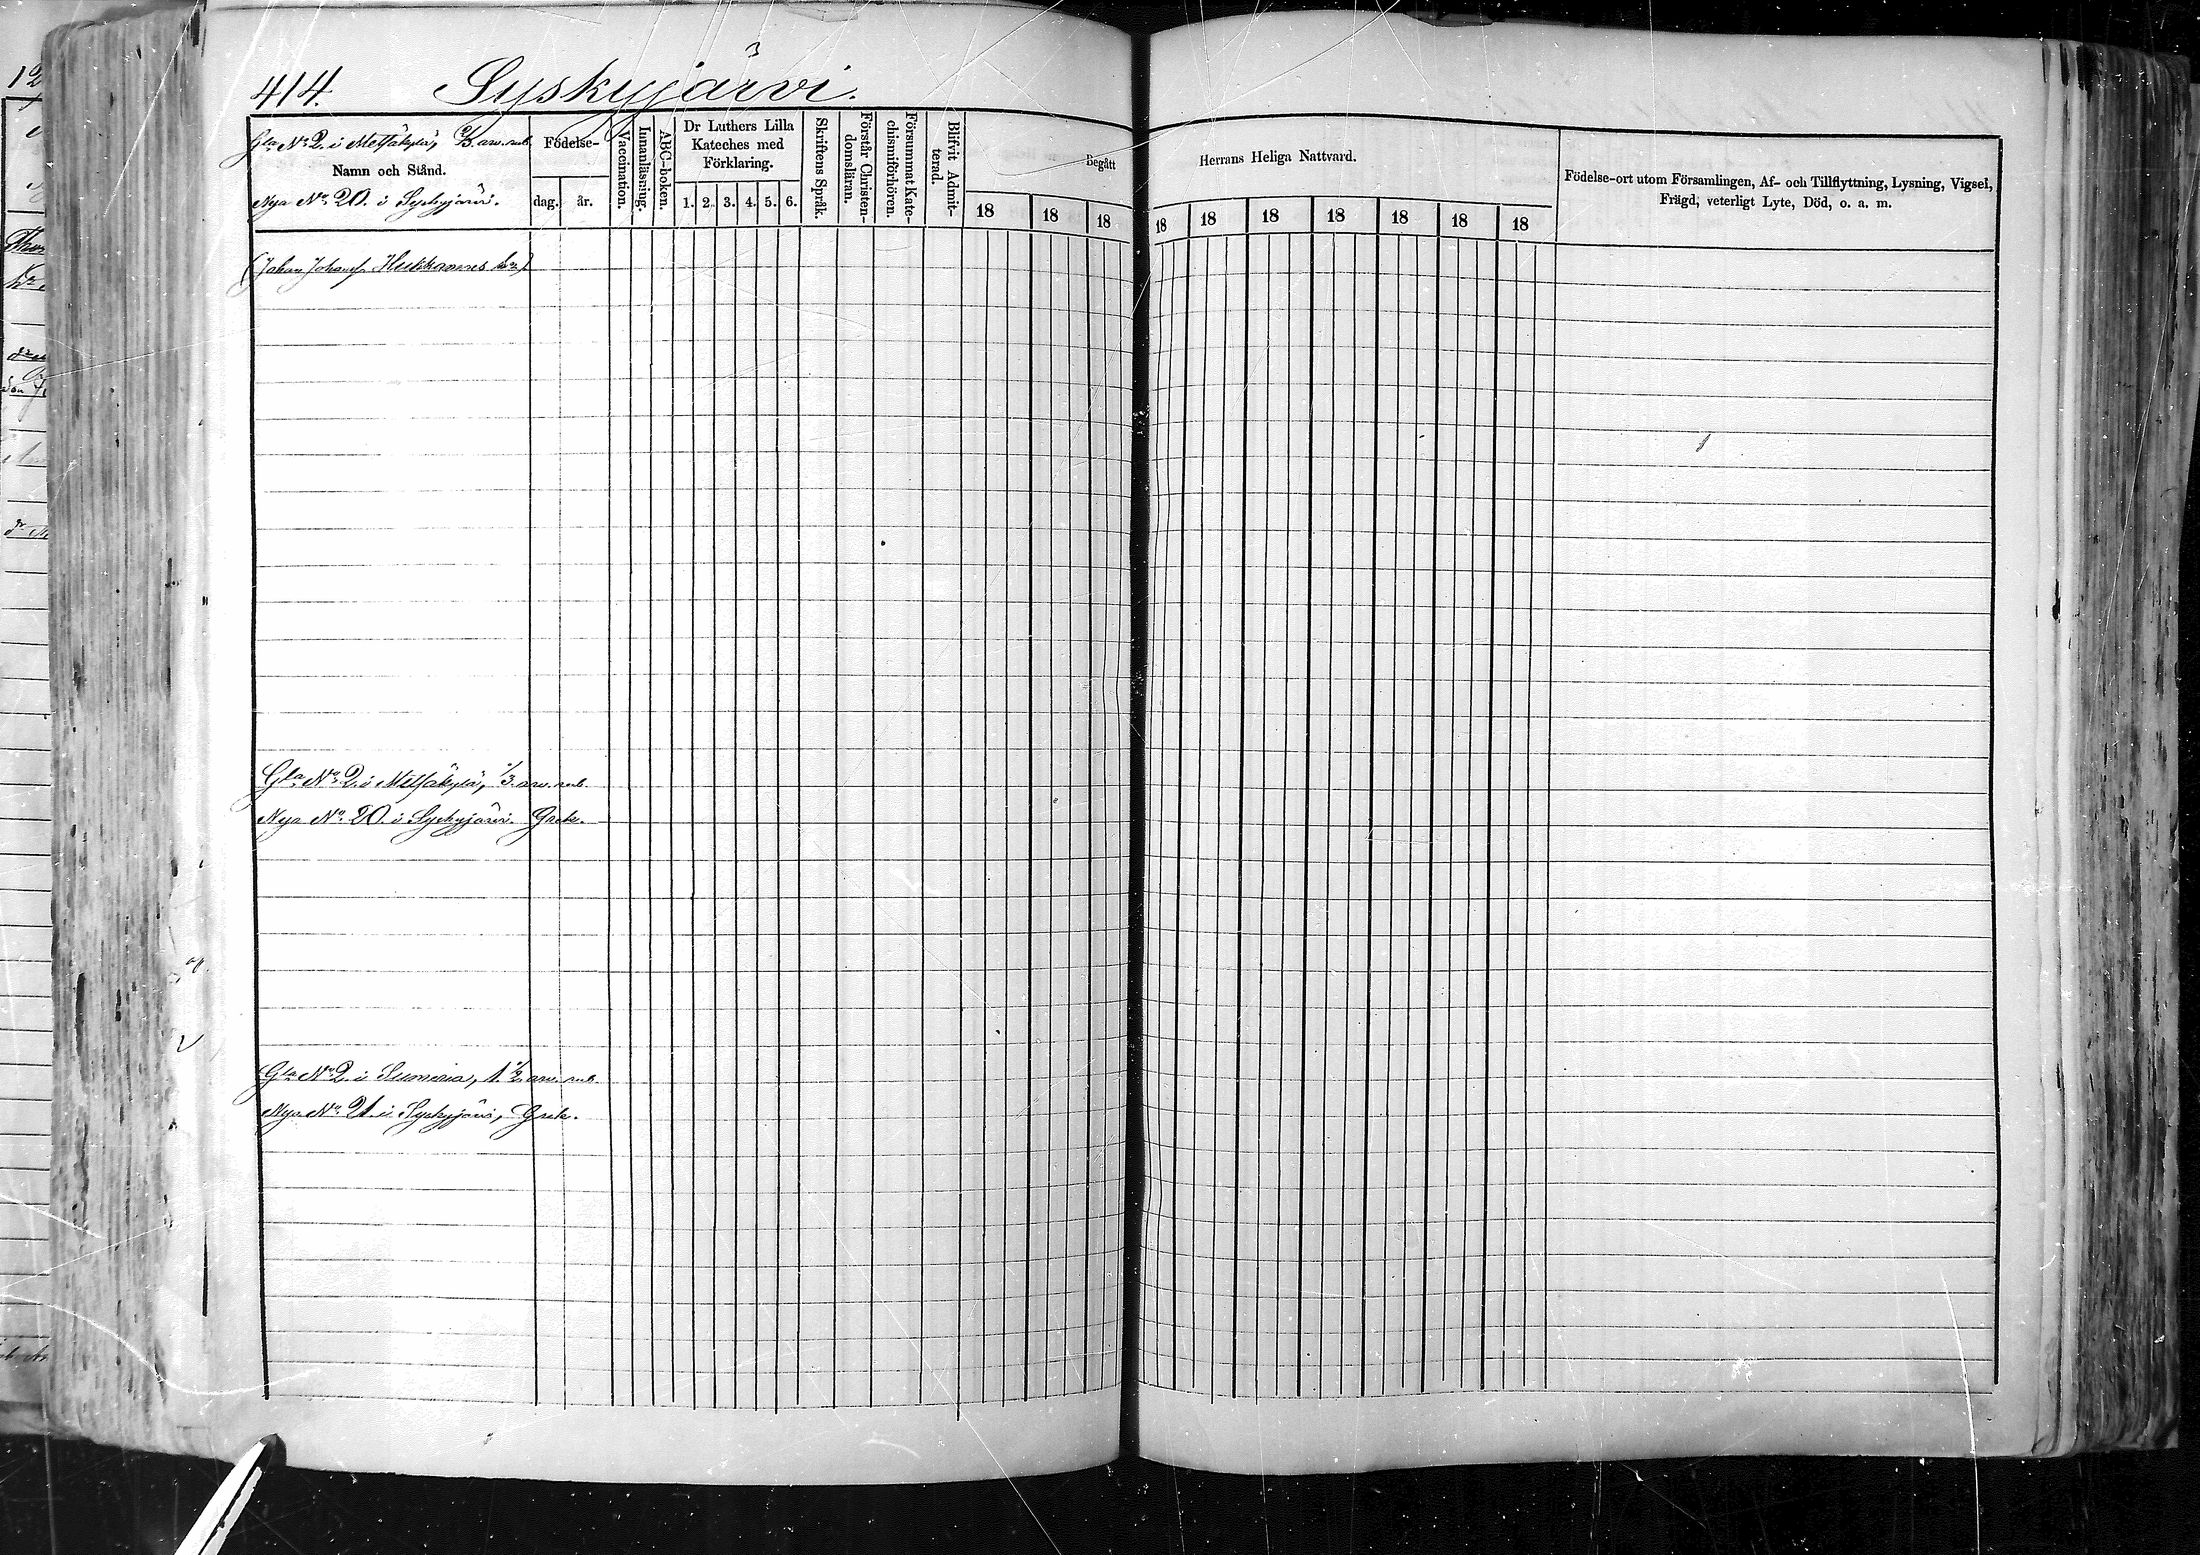 414. Syskyjärvi.
Gla No 2. i Metsäkylä, 2/3 arv. rub.
Namn och Stånd.
Nya No 20. i Syskyjärvi.
Födelse-
dag. år.
Vaccination.
Innanläsning.
ABC-boken.
Dr Luthers Lilla
Kateches med
Förklaring.
1. 2. 3. 4. 5. 6.
Skriftens Språk.
Förstår Christen-
domsläran.
Försummat Kate-
chismiförhören.
Blifvit Admit-
terad.
Begått Herrans Heliga Nattvard.
18 18 18 18 18 18 18 18 18 18
Födelse-ort utom Församlingen, Af- och Tillflyttning, Lysning, Vigsel,
Frägd, veterligt Lyte, Död, o. a. m.
(Johan Johansf.
Gla No 2. i Metsäkylä, 1/3 arv. rub.
Nya No 20. i Syskyjärvi. Grek.
Gla No 2. i Sumeria, 1 1/2 arv. rub.
Nya No 21. i Syskyjärvi, Grek.